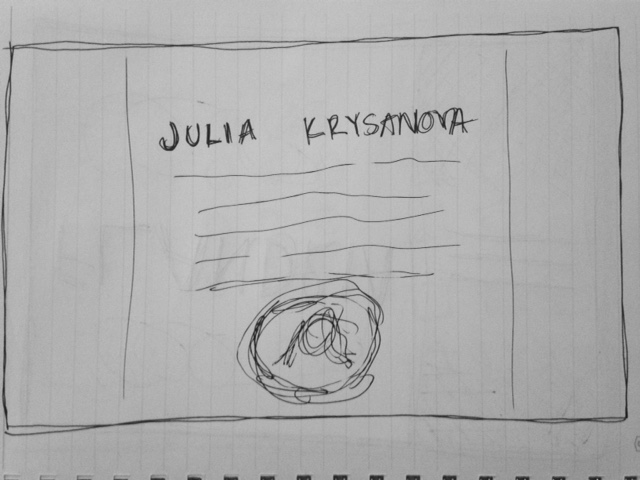 JULIA KRYSANOVA